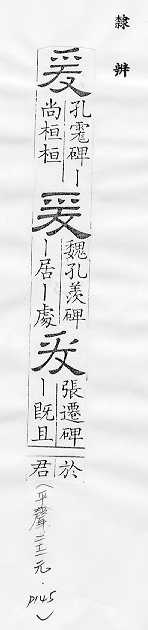 隸辨
爰
孔碑丨
尚桓桓
爰
魏孔羨碑
丨居丨處
爰
張遷碑
丨既且
於
君
(平聲二十二元．P145)